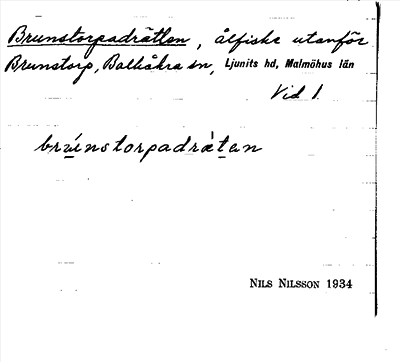 Brunstorpadrätten, ålfiske utanför
Brunstorp, Balkåkra sn, Ljunits hd, Malmöhus län
Vid 1.
bruinstorpadrätan
NILS NILSSON 1934